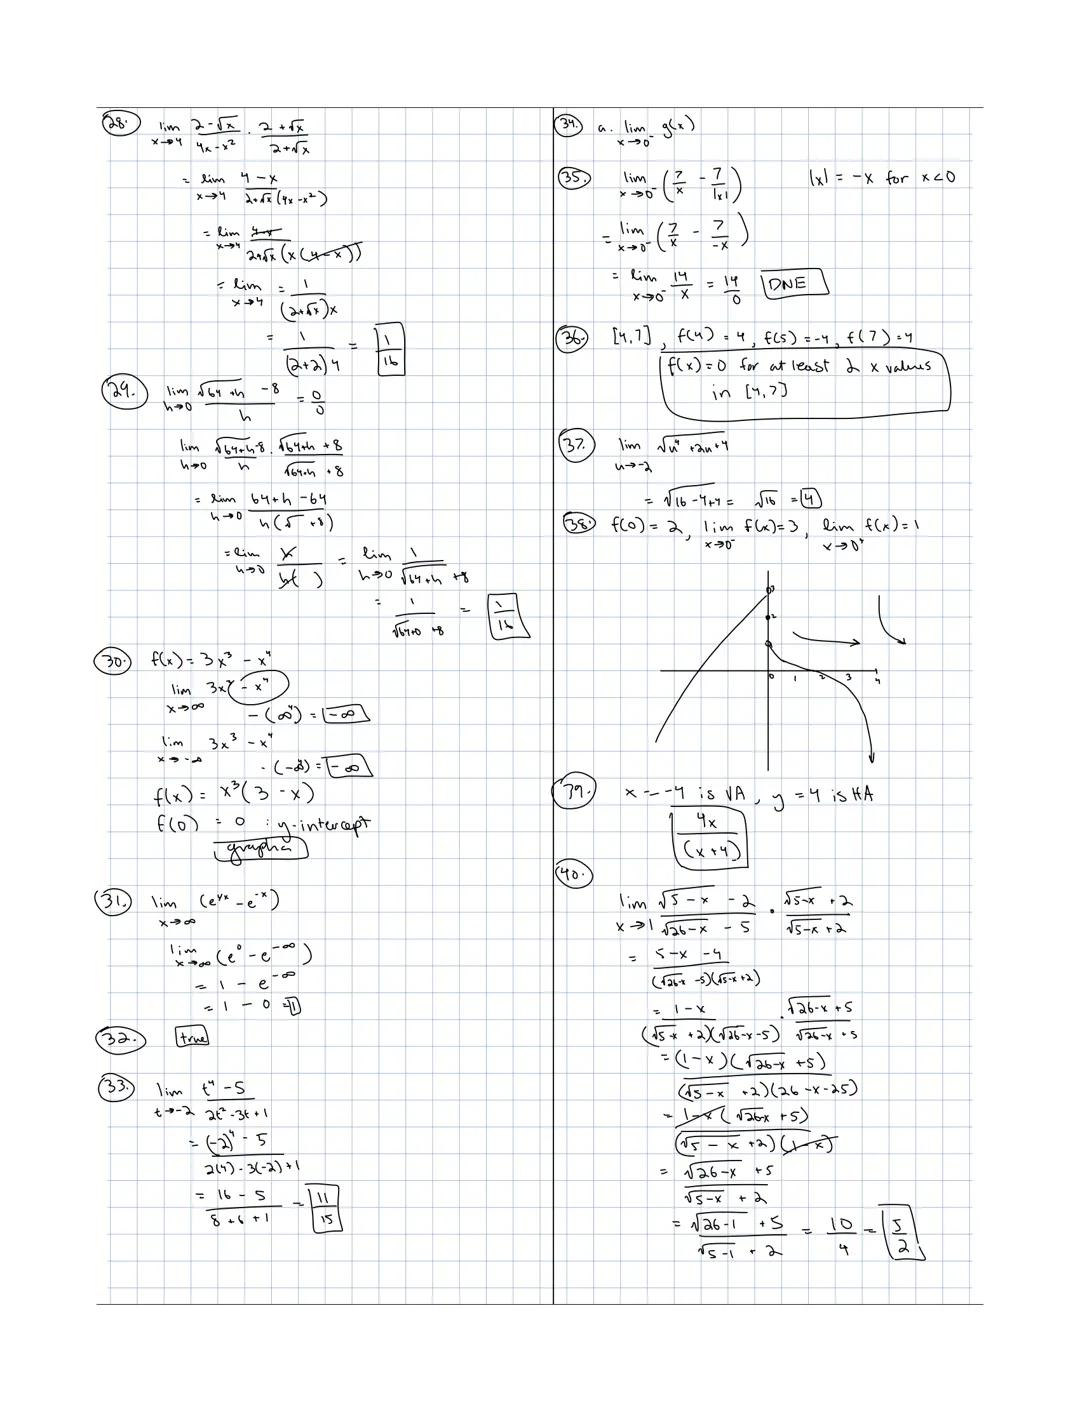 28. lim x→4 (2-√x)/(4x-x²) · (2+√x)/(2+√x)
= lim x→4 (4-x)/(2+√x(4x-x²))
= lim x→4 (4-x)/(2+√x(x(4-x)))
= lim x→4 = 1/((2+√x)x)
= 1/((2+2)4) = 1/16
29. lim h→0 (√64+h -8)/h = 0/0
lim h→0 (√64+h-8)/h · (√64+h +8)/(√64+h +8)
= lim h→0 (64+h-64)/(h(√ +8))
= lim h→0 h/(h( )) = lim h→0 1/(√64+h +8)
= 1/(√64+0 +8) = 1/16
30. f(x) = 3x³ - x⁴
lim x→∞ 3x³ - x⁴
-(∞⁴) = -∞
lim x→-∞ 3x³ - x⁴
-(-∞) = -∞
f(x) = x³(3-x)
f(0) = 0 : y-intercept
graph a
31. lim x→∞ (e^(1/x) - e^(-x))
lim x→∞ (e⁰ - e^(-∞))
= 1 - e^(-∞)
= 1 - 0 = 1
32. true
33. lim t→-2 (t⁴-5)/(2t²-3t+1)
= ((-2)⁴-5)/(2(4)-3(-2)+1)
= (16-5)/(8+6+1) = 11/15
34. a. lim x→0⁻ g(x)
35. lim x→0⁻ (7/x - 7/|x|) |x| = -x for x<0
= lim x→0⁻ (7/x - 7/-x)
= lim x→0⁻ 14/x = 14/0 DNE
36. [4,7], f(4) = 4, f(5) = -4, f(7) = 4
f(x) = 0 for at least 2 x values
in [4,7]
37. lim u→-2 √u⁴+2u+4
= √16-4+4 = √16 = 4
38. f(0) = 2, lim x→0⁻ f(x) = 3, lim x→0⁺ f(x) = 1
3
2
0 1 2 3 4
39. x = -4 is VA, y = 4 is HA
4x/(x+4)
40.
lim x→1 (√5-x - 2)/(√26-x - 5) · (√5-x + 2)/(√5-x + 2)
= (5-x-4)/((√26-x -5)(√5-x +2))
= (1-x)/((√5-x +2)(√26-x -5)) · (√26-x +5)/(√26-x +5)
= (1-x)(√26-x +5)/((√5-x +2)(26-x-25))
= 1-x(√26-x +5)/((√5-x +2)(1-x))
= (√26-x +5)/(√5-x +2)
= (√26-1 +5)/(√5-1 +2) = 10/4 = 5/2